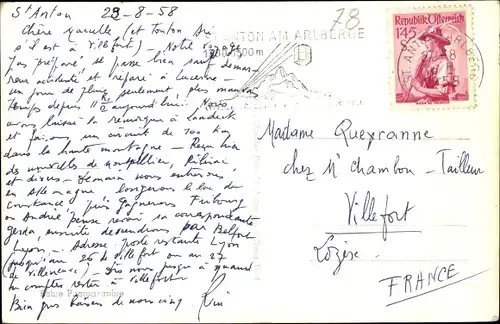 St Anton 23-8-58
78
Chère Marcelle (et Tonton
s'il est à Villefort) - Notre
se passe bien sauf
accidenté et réparé à Lucerne -
un jour de pluie seulement, plus mauvais
temps depuis 11h aujourd'hui. Nous
avons laissé la remorque à Landeck
et faisons un circuit de 700 km
dans la haute montagne - Reçu
des nouvelles de Montpellier,
et - Demain nous entrerons
en Allemagne longerons le lac de
Constance, puis gagnerons Fribourg
où André pense revoir sa correspondante
Gerda, ensuite descendrons par Belfort
Lyon - Adresse poste restante Lyon
(jusqu'au 26 de Villefort ou au 27
de Villeneuve) - Dis nous jusqu'à quand
tu comptes rester à Villefort.
Bien gros baisers de nous cinq
Echte Photographie
ST ANTON AM ARLBERG
Republik Österreich
145
Madame Queyranne
chez Mr Chambon - Tailleur
Villefort
Lozère
FRANCE